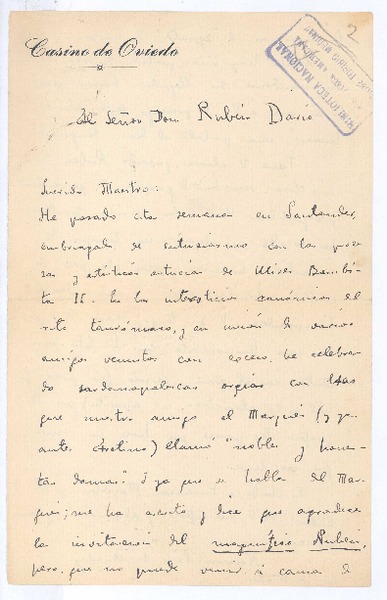 Casino de Oviedo
2
BIBLIOTECA NACIONAL
Al Señor Don Rubén Darío
Querido Maestro:
He pasado esta semana en Santander,
embriagado de entusiasmo con las proe
zas y artísticas astucias de Ulises Bombi
ta II. En los intersticios canónicos del
rito taurómaco, y en unión de varios
amigos venustos con exceso, he celebra
do sardanapalescas orgías con las
que nuestro amigo el Marqués (y ga
lante Avelino) llamó "nobles y hones
tas damas". Y ya que se habla del Mar
qués; me ha escrito y dice que agradece
la invitación del magnífico Rubén,
pero que no puede venir á causa de